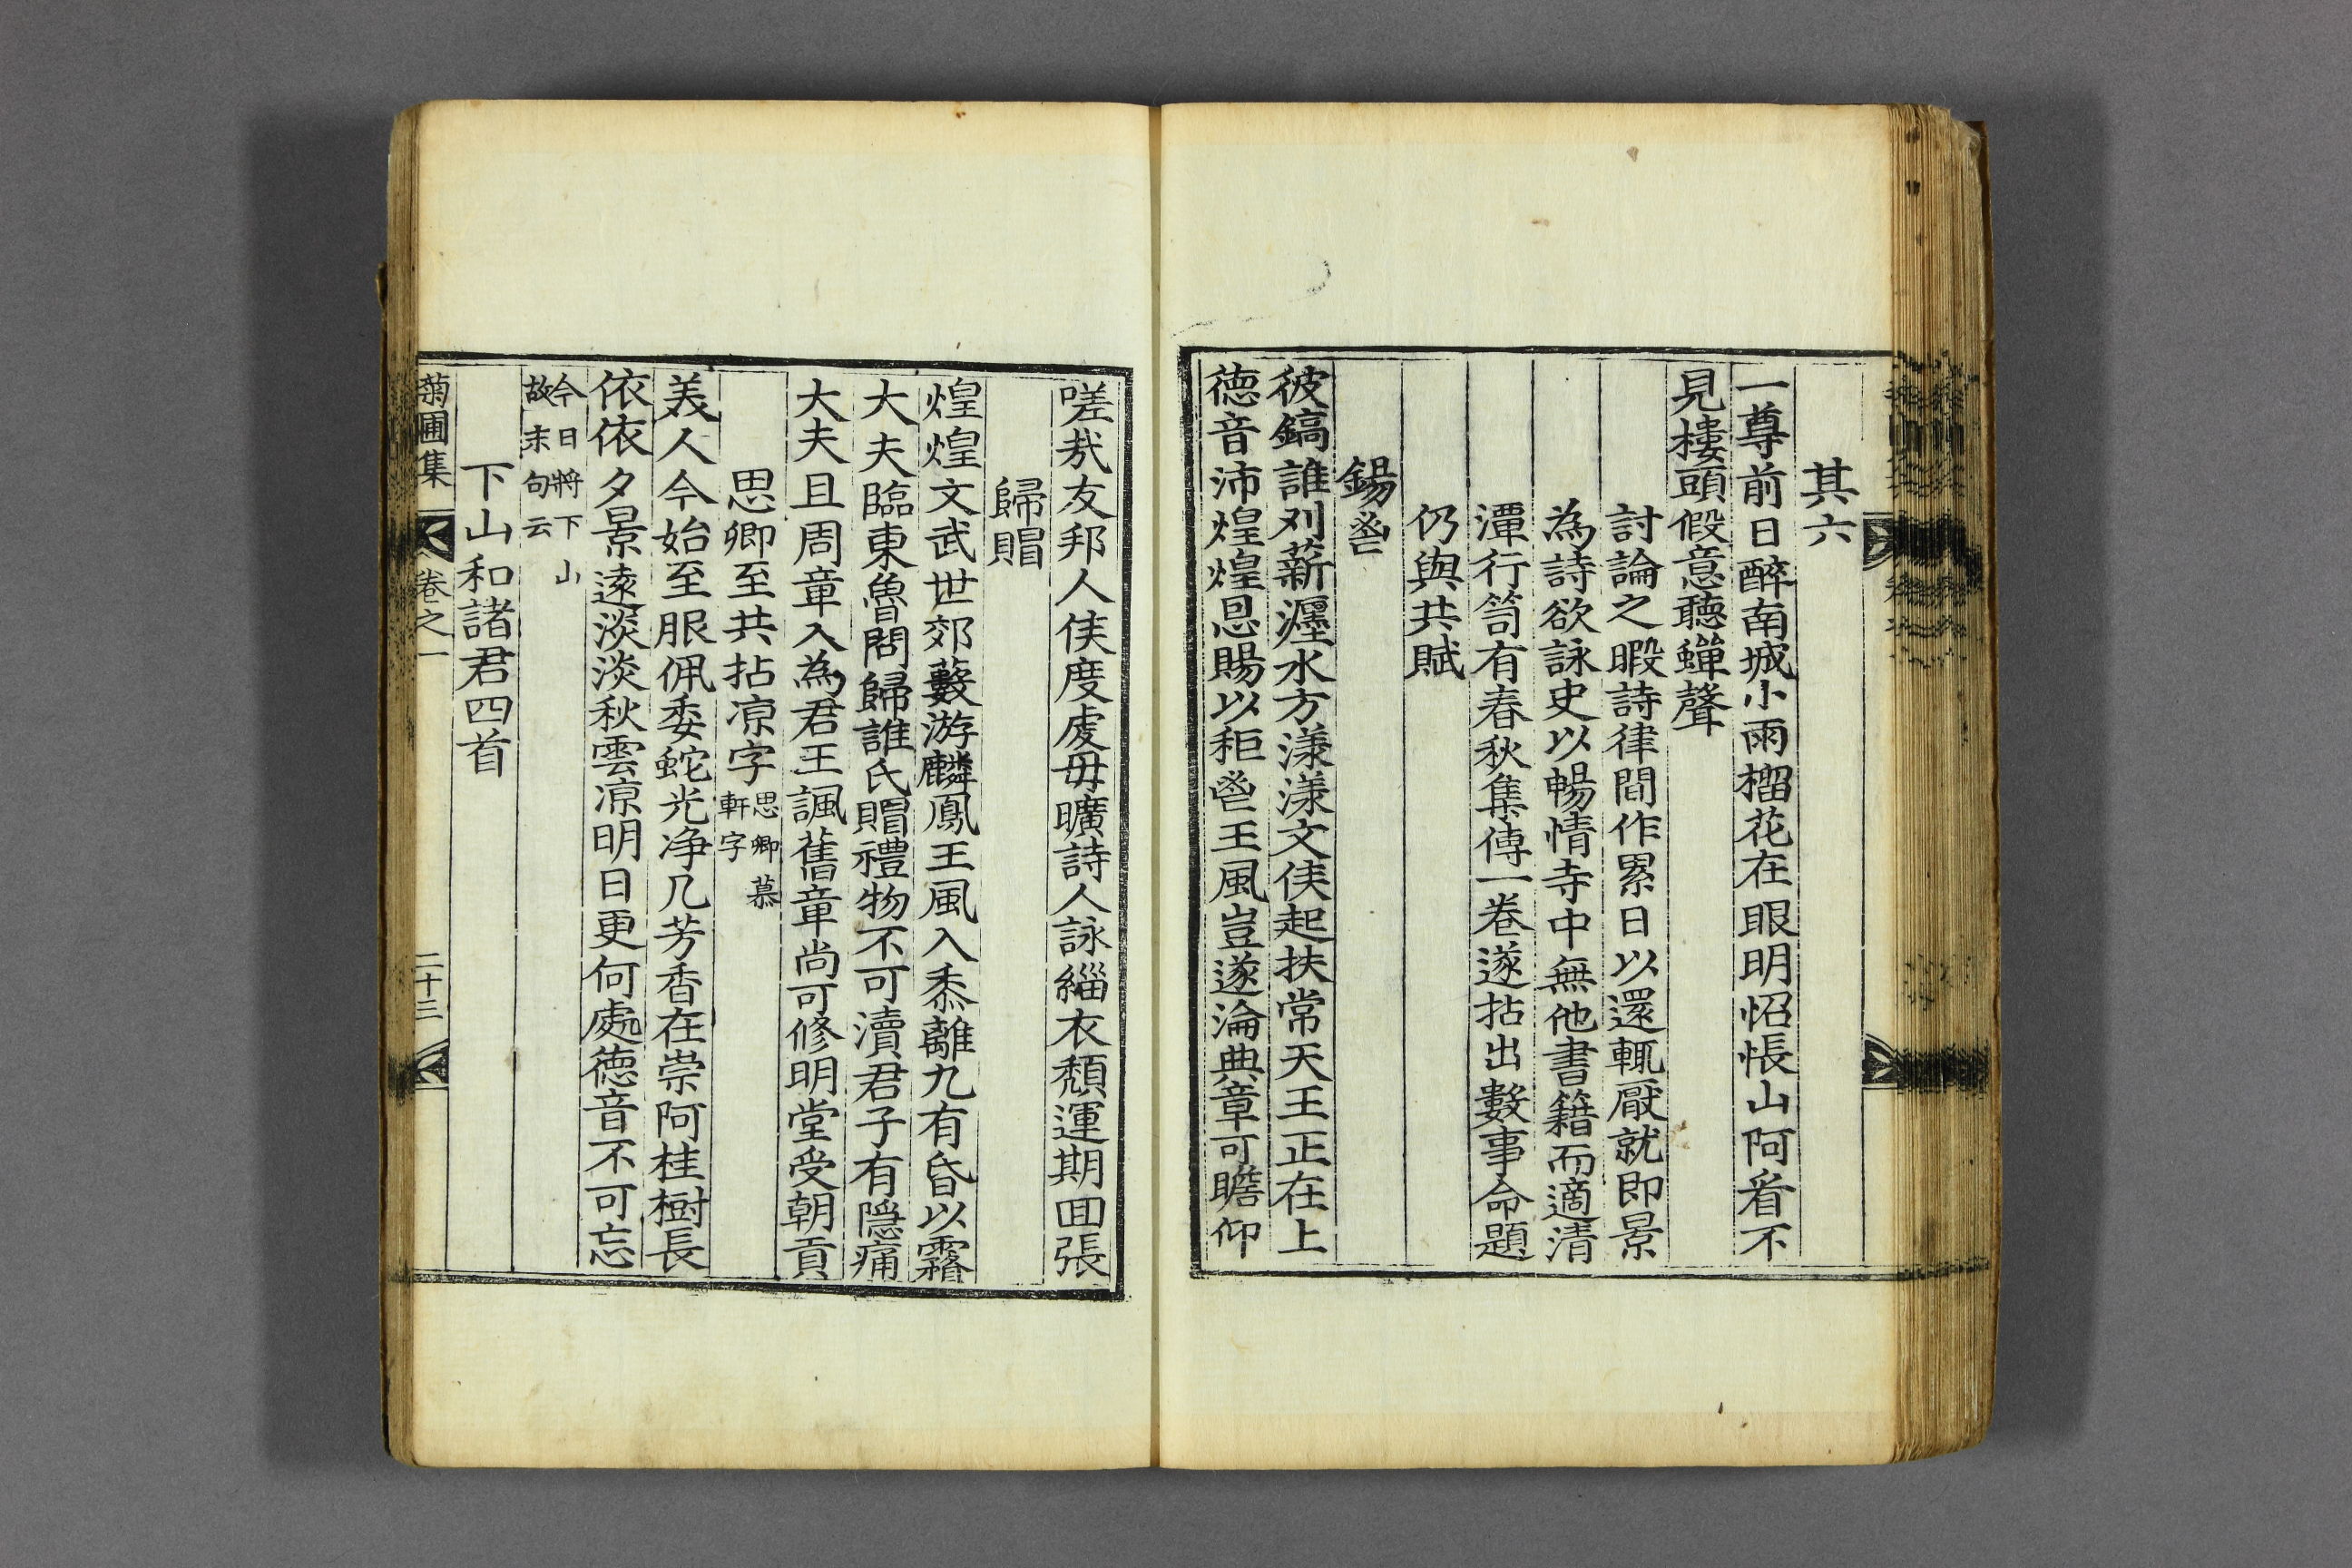 其六
一尊前日醉南城小雨榴花在眼明怊悵山阿看不
見樓頭假意聽蟬聲
討論之暇詩律間作累日以還輒厭就即景
為詩欲詠史以暢情寺中無他書籍而適清
潭行笥有春秋集傳一卷遂拈出數事命題
仍與共賦
錫鬯
彼鎬誰刈薪瀍水方漾漾文侯起扶常天王正在上
德音沛煌煌恩賜以秬鬯王風豈遂淪典章可瞻仰
嗟哉友邦人侯度虔毋曠詩人詠緇衣頹運期回張
歸賵
煌煌文武世郊藪游麟鳳王風入黍離九有昏以霿
大夫臨東魯問歸誰氏賵禮物不可瀆君子有隱痛
大夫且周章入為君王諷舊章尚可修明堂受朝貢
思卿至共拈凉字思卿慕
軒字
美人今始至服佩委蛇光净几芳香在崇阿桂樹長
依依夕景遠淡淡秋雲凉明日更何處德音不可忘
今日將下山
故末句云
下山和諸君四首
菊圃集 卷之一 二十三